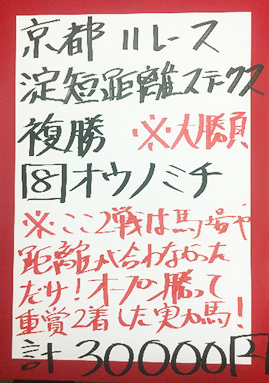 京都 11レース
淀短距離ステークス
複勝 ※大勝負
8 オウノミチ
※ここ2戦は馬場や
距離が合わなかった
だけ!オープン勝って
重賞2着した実力馬!
計30000円